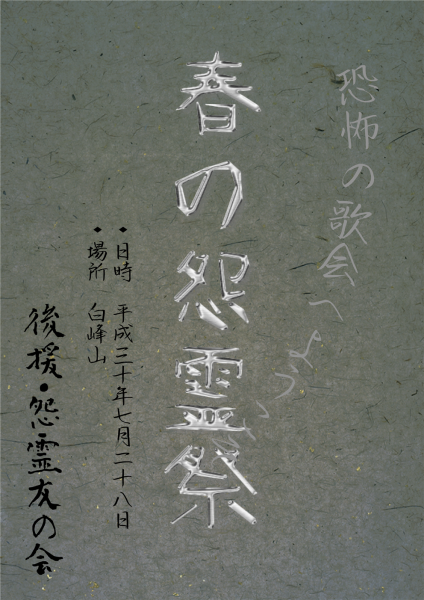 恐怖の歌会へようこそ
春の怨霊祭
・日時 平成三十年七月二十八日
・場所 白峰山
後援・怨霊友の会